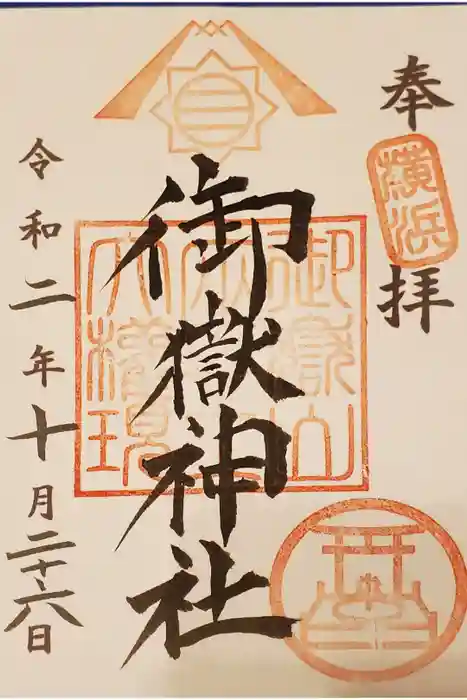 奉拝
横浜
御嶽神社
御嶽山
大權現
令和二年十月二十六日